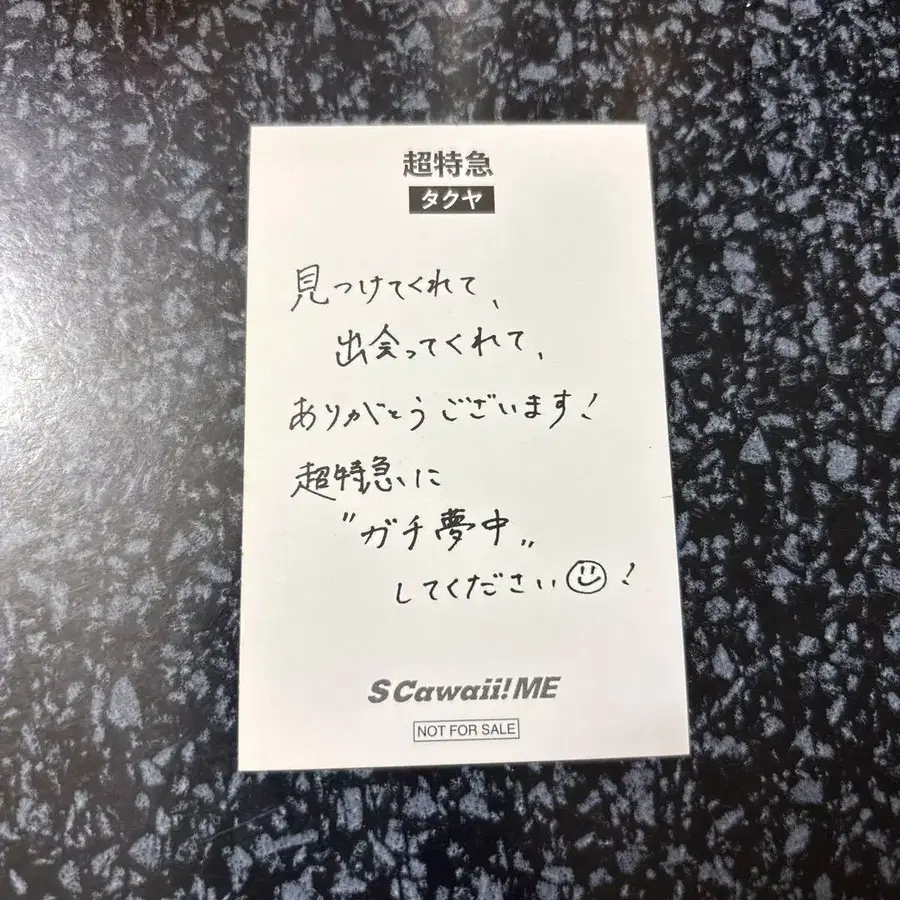 超特急
タクヤ
見つけてくれて、
出会ってくれて、
ありがとうございます!
超特急に
〝ガチ夢中〟
してください☺!
S Cawaii! ME
NOT FOR SALE